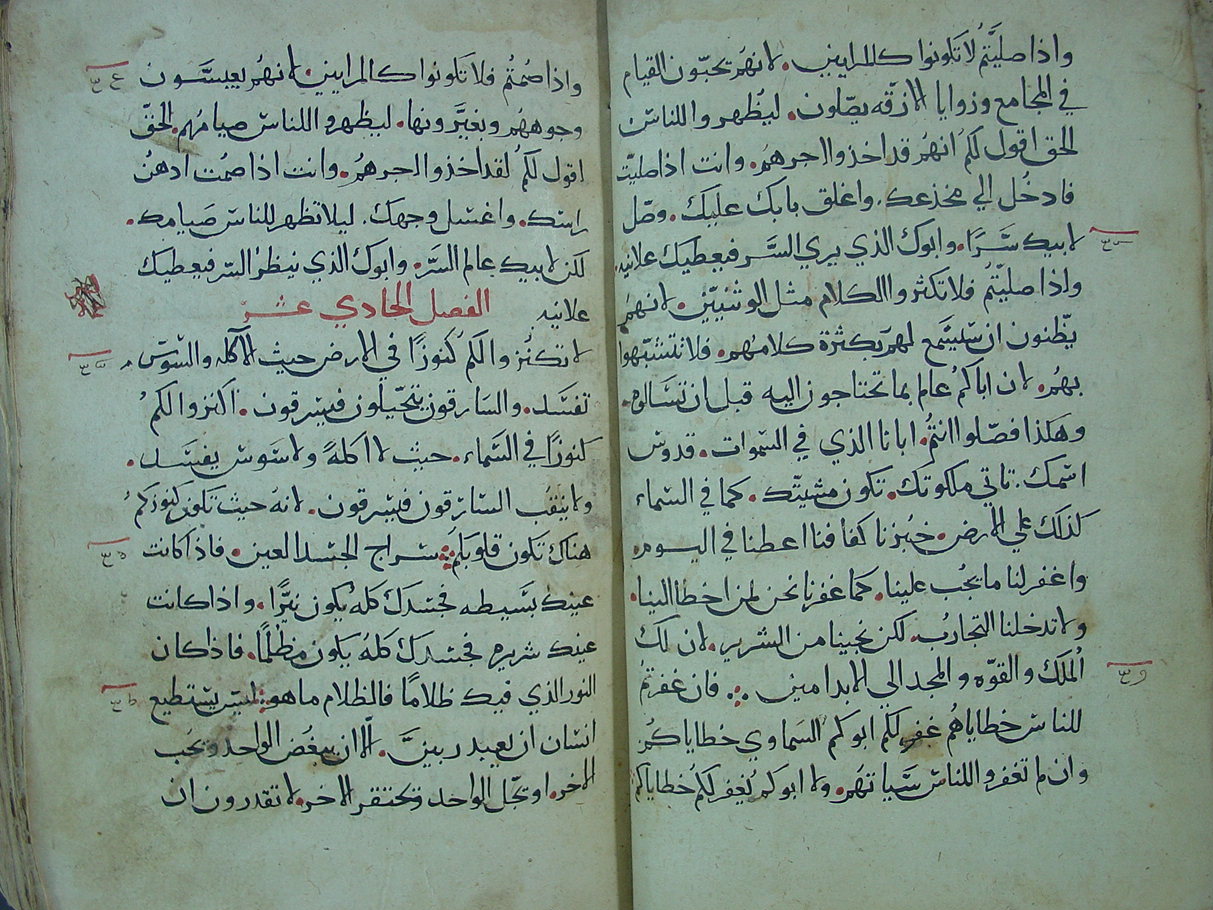 واذا صليتم لا تكونوا كالمرايين. لانهم يحبون القيام
في المجامع وزوايا الازقه يصلون. ليظهروا للناس
الحق اقول لكم انهم قد اخذوا اجرهم. وانت اذا صليت
فادخل الي مخدعك. واغلق بابك عليك. وصل
لابيك سرًا. وابوك الذي يري السر فيعطيك علانيه
واذا صليتم فلا تكثروا الكلام مثل الوثنيين. لانهم
يظنون ان سيستمع لهم بكثرة كلامهم. فلا تتشبهوا
بهم. لان اباكم عالم بما تحتاجون اليه قبل ان تسالوه.
وهكذا فصلوا انتم. ابانا الذي في السموات. قدوس
اسمك. تاتي ملكوتك. تكون مشيتك. كما في السماء
كذلك علي الارض. خبزنا كفافنا اعطنا في اليوم.
واغفر لنا ما يجب علينا. كما غفرنا نحن لمن اخطا الينا.
ولا تدخلنا التجارب. لكن نجينا من الشرير. لان لك
الملك والقوه والمجد الي الابد امين. فان غفرتم
للناس خطاياهم غفر لكم ابوكم السماوي خطاياكم
وان لم تغفروا للناس سياتهم. ولا ابوكم يغفر لكم خطاياكم
واذا صمتم فلا تكونوا كالمرايين. لانهم يعبسون
وجوههم ويغيرونها. ليظهروا للناس صيامهم. الحق
اقول لكم لقد اخذوا اجرهم. وانت اذا صمت ادهن
راسك. واغسل وجهك. ليلا تظهر للناس صيامك.
لكن لابيك عالم السر. وابوك الذي ينظر السر فيعطيك
علانيه الفصل الحادي عشر
لا تكنزوا لكم كنوزًا في الارض حيث الاكله والسوس
تفسد. والسارقون يتحيلون فيسرقون. اكنزوا لكم
كنوزًا في السماء. حيث لا اكلة ولا سوس يفسد.
ولا ينقب السارقون فيسرقون. لانه حيث تكون كنوزكم
هناك تكون قلوبكم سراج الجسد العين. فاذا كانت
عينك بسيطه فجسدك كله يكون نيرًا. واذا كانت
عينك شريره فجسدك كله يكون مظلمًا. فاذا كان
النور الذي فيك ظلامًا فالظلام ما هو ليس يستطيع
انسان ان يعبد ربين. الا ان يبغض الواحد ويحب
الاخر. او يجل الواحد ويحتقر الاخر. لا تقدرون ان